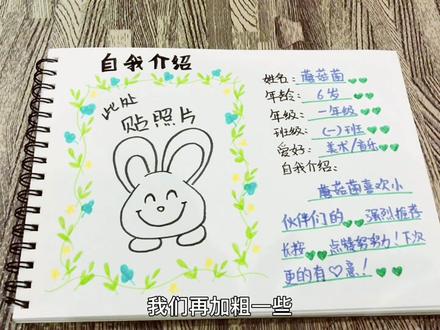 自我介绍
此处
贴照片
姓名：蘑菇菌
年龄：6岁
年级：一年级
班级：(一)班
爱好：美术/音乐
自我介绍：
蘑菇菌喜欢小
伙伴们的 强烈推荐
长按 点赞努力！下次
更的有♡意！
我们再加粗一些